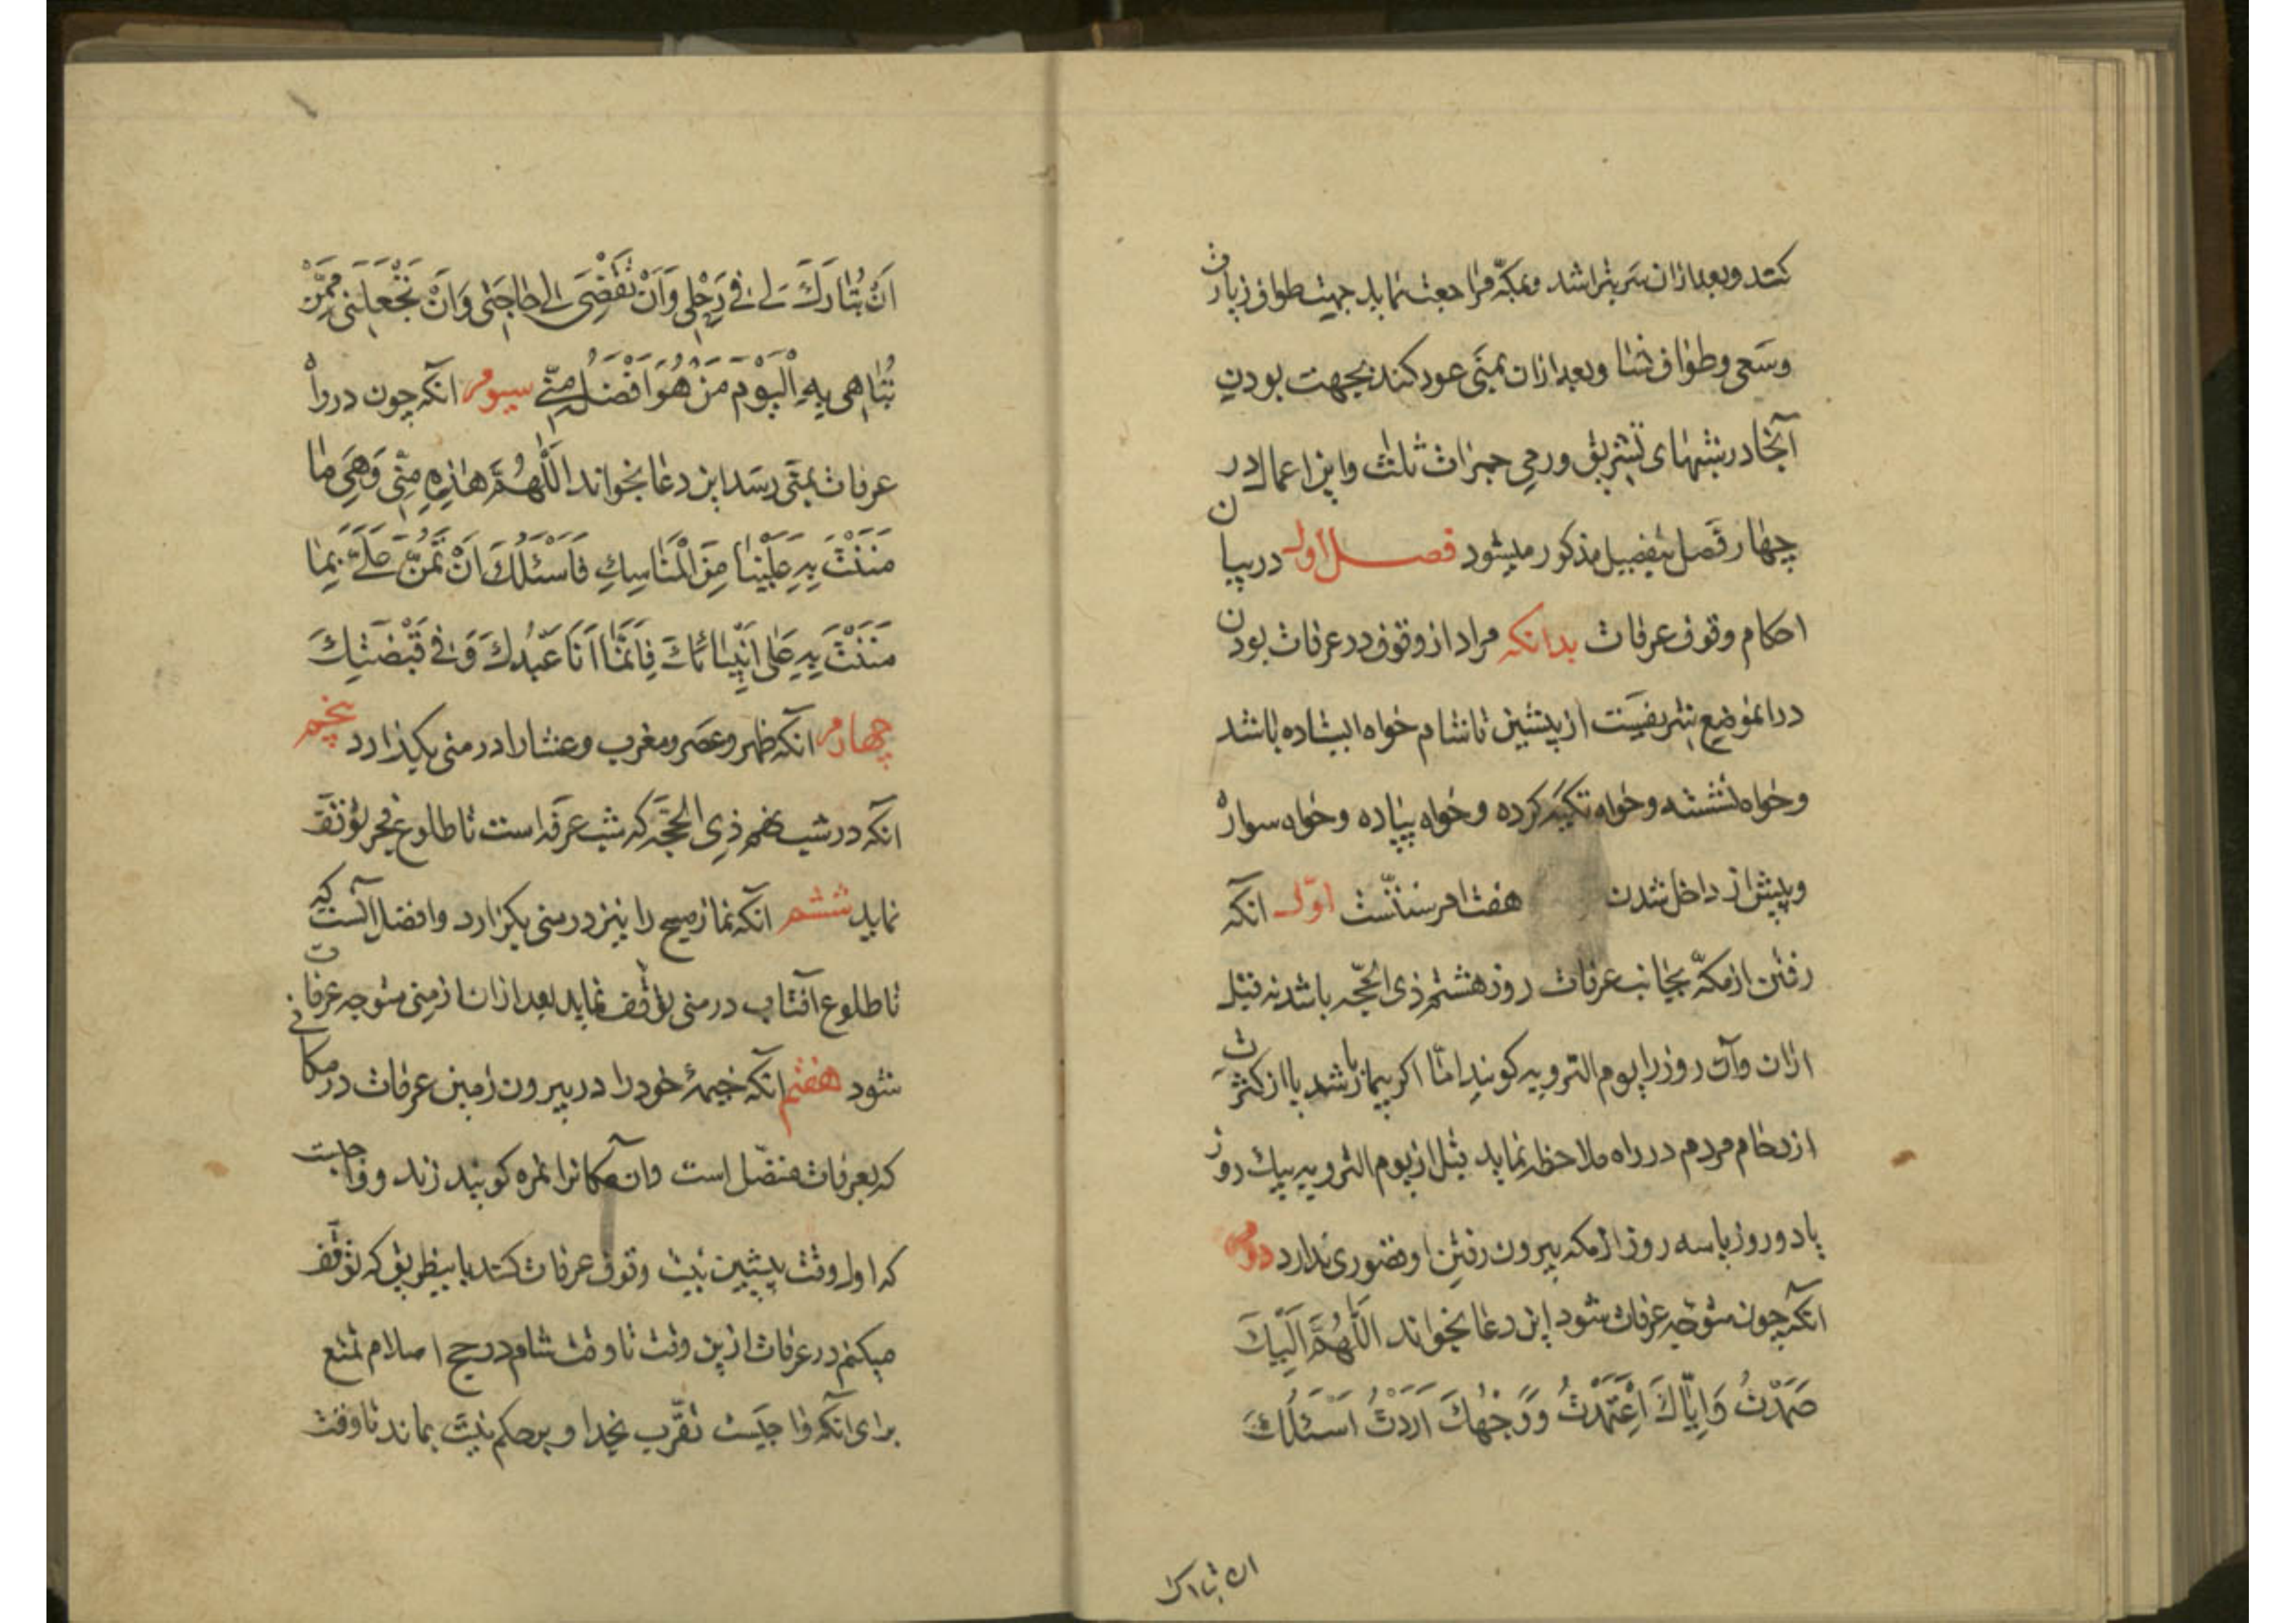 کنند و بعد ازان سر بتراشد و بمکّه مراجعت نماید جهت طواف زیارت
وسَعی و طواف نسا و بعد ازان بمنَی عود کند بجهت بودن
آنجا در شبهای تشریق و رمی جمرات ثلث و این اعمال در
چهار فصل بتفصیل مذکور میشود فصل اول در بیان
احکام وقوف عرفات بدانکه مراد از وقوف در عرفات بودن
در انموضع شریفست از پیشین تا شام خواه ایستاده باشد
و خواه نشسته و خواه تکیه کرده و خواه پیاده و خواه سواره
و پیش از داخل شدن هفت امر سنّتست اوّل انکه
رفتن از مکّه بجانب عرفات روز هشتم ذی الحجّه باشد نه قبل
ازان و آن روز را یوم الترویه کویند امّا اکر بیمار باشد یا از کثرت
ازدحام مردم در راه ملاحظه نماید قبل از یوم الترویه بیک روز
یا دو روز یا سه روز از مکه بیرون رفتن او قصوری ندارد دوم
انکه چون متوجّه عرفات شود این دعا بخواند اَللّهُمَّ اِلَیْكَ
صَمَدْتُ وَاِیّاكَ اعْتَمَدْتُ وَوَجْهَكَ اَرَدْتُ اَسْئَلُكَ
ان تبارك
اَنْ تُبٰارِكَ لی فی رَحْلی وَاَنْ تَقْضِیَ لی حاجَتی وَاَنْ تَجْعَلَنی مِمَّنْ
تُبٰاهی بِهِ الْیَوْمَ مَنْ هُوَ اَفْضَلُ مِنّی سیوم انکه چون در راه
عرفات بمنَی رسد این دعا بخواند اَللّٰهُمَّ هٰذِهِ مِنی وَهِیَ مٰا
مَنَنْتَ بِهِ عَلَیْنٰا مِنَ الْمَنٰاسِكِ فَاَسْئَلُكَ اَنْ تَمُنَّ عَلَیَّ بِمٰا
مَنَنْتَ بِهِ عَلٰی اَنْبِیٰائِكَ فَاِنَّمٰا اَنَا عَبْدُكَ وَفی قَبْضَتِكَ
چهارم انکه ظهر و عصر و مغرب و عشا را در منی بکذارد پنجم
انکه در شب نهم ذی الحجّه که شب عرفه است تا طلوع فجر توقف
نماید ششم انکه نماز صبح را نیز در منی بکزارد و افضل آنست که
تا طلوع آفتاب در منی توقّف نماید بعد ازان از منی متوجه عرفات
شود هفتم انکه خیمهٔ خود را در بیرون زمین عرفات در مکانی
که بعرفات متصّل است و ان مکانرا نمره کویند زند و واجبست
که اول وقت پیشین نیت وقوف عرفات کند باینطریق که توقّف
میکنم در عرفات ازین وقت تا وقت شام در حج اسلام تمتع
برای انکه واجبست تقرّب بخدا و بر حکم نیّت بماند تا وقت